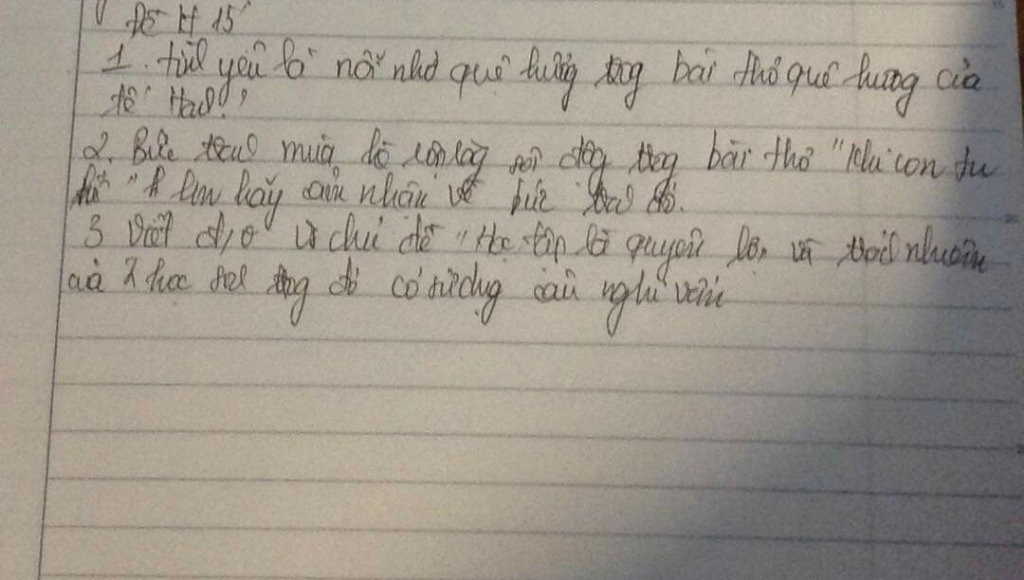 Đề H 15'
1. tình yêu là nỗi nhớ quê hương tog bài thơ quê hương của
tế Hanh?
2. Bức tranh mùa hè sôi động tog bài thơ "Khi con tu
hú" em hãy cảm nhận về bức tranh đó.
3 Viết đ, o về chủ đề "Học tập là quyền lợi và trách nhiệm
của học tog đó có sử dụng câu nghi vấn